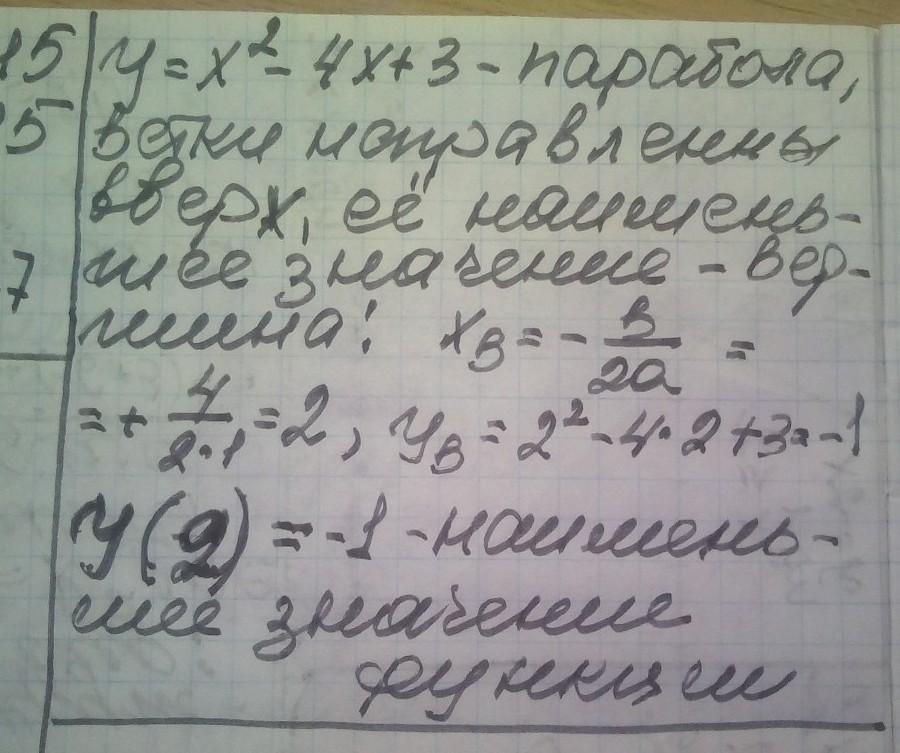 15 y = x² - 4x + 3 - парабола,
5 ветки направленны
вверх, её наимень-
7 шее значение - вер-
шина! xв = - в/2a =
= + 4/2·1 = 2, yв = 2² - 4·2 + 3 = -1
y(2) = -1 - наимень-
шее значение
функции